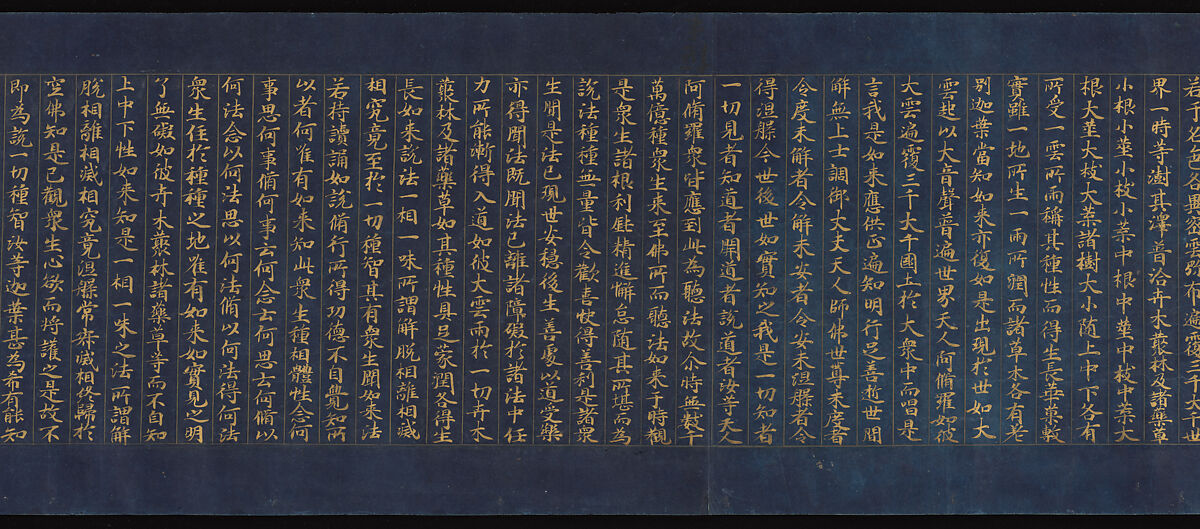 若干名色各異密雲弥布遍覆三千大千世
界一時等澍其澤普洽卉木藂林及諸藥草
小根小莖小枝小葉中根中莖中枝中葉大
根大莖大枝大葉諸樹大小随上中下各有
所受一雲所雨稱其種性而得生長華菓敷
實雖一地所生一雨所潤而諸草木各有差
別迦葉當知如来亦復如是出現於世如大
雲起以大音聲普遍世界天人阿脩羅如彼
大雲遍覆三千大千國土於大衆中而唱是
言我是如来應供正遍知明行足善逝世間
解無上士調御丈夫天人師佛世尊未度者
令度未解者令解未安者令安未涅槃者令
得涅槃今世後世如實知之我是一切知者
一切見者知道者開道者說道者汝等天人
阿脩羅衆皆應到此為聽法故尒時無數千
萬億種衆生来至佛所而聽法如来于時觀
是衆生諸根利鈍精進懈怠随其所堪而為
說法種種無量皆令歡喜快得善利是諸衆
生聞是法已現世安穩後生善處以道受樂
亦得聞法既聞法已離諸障礙於諸法中任
力所能漸得入道如彼大雲雨於一切卉木
藂林及諸藥草如其種性具足蒙潤各得生
長如来說法一相一味所謂解脫相離相滅
相究竟至於一切種智其有衆生聞如来法
若持讀誦如說脩行所得功德不自覺知所
以者何唯有如来知此衆生種相體性念何
事思何事脩何事云何念云何思云何脩以
何法念以何法思以何法脩以何法得何法
衆生住於種種之地唯有如来如實見之明
了無礙如彼卉木藂林諸藥草等而不自知
上中下性如来知是一相一味之法所謂解
脫相離相滅相究竟涅槃常寂滅相終歸於
空佛知是已觀衆生心欲而将護之是故不
即為說一切種智汝等迦葉甚為希有能知